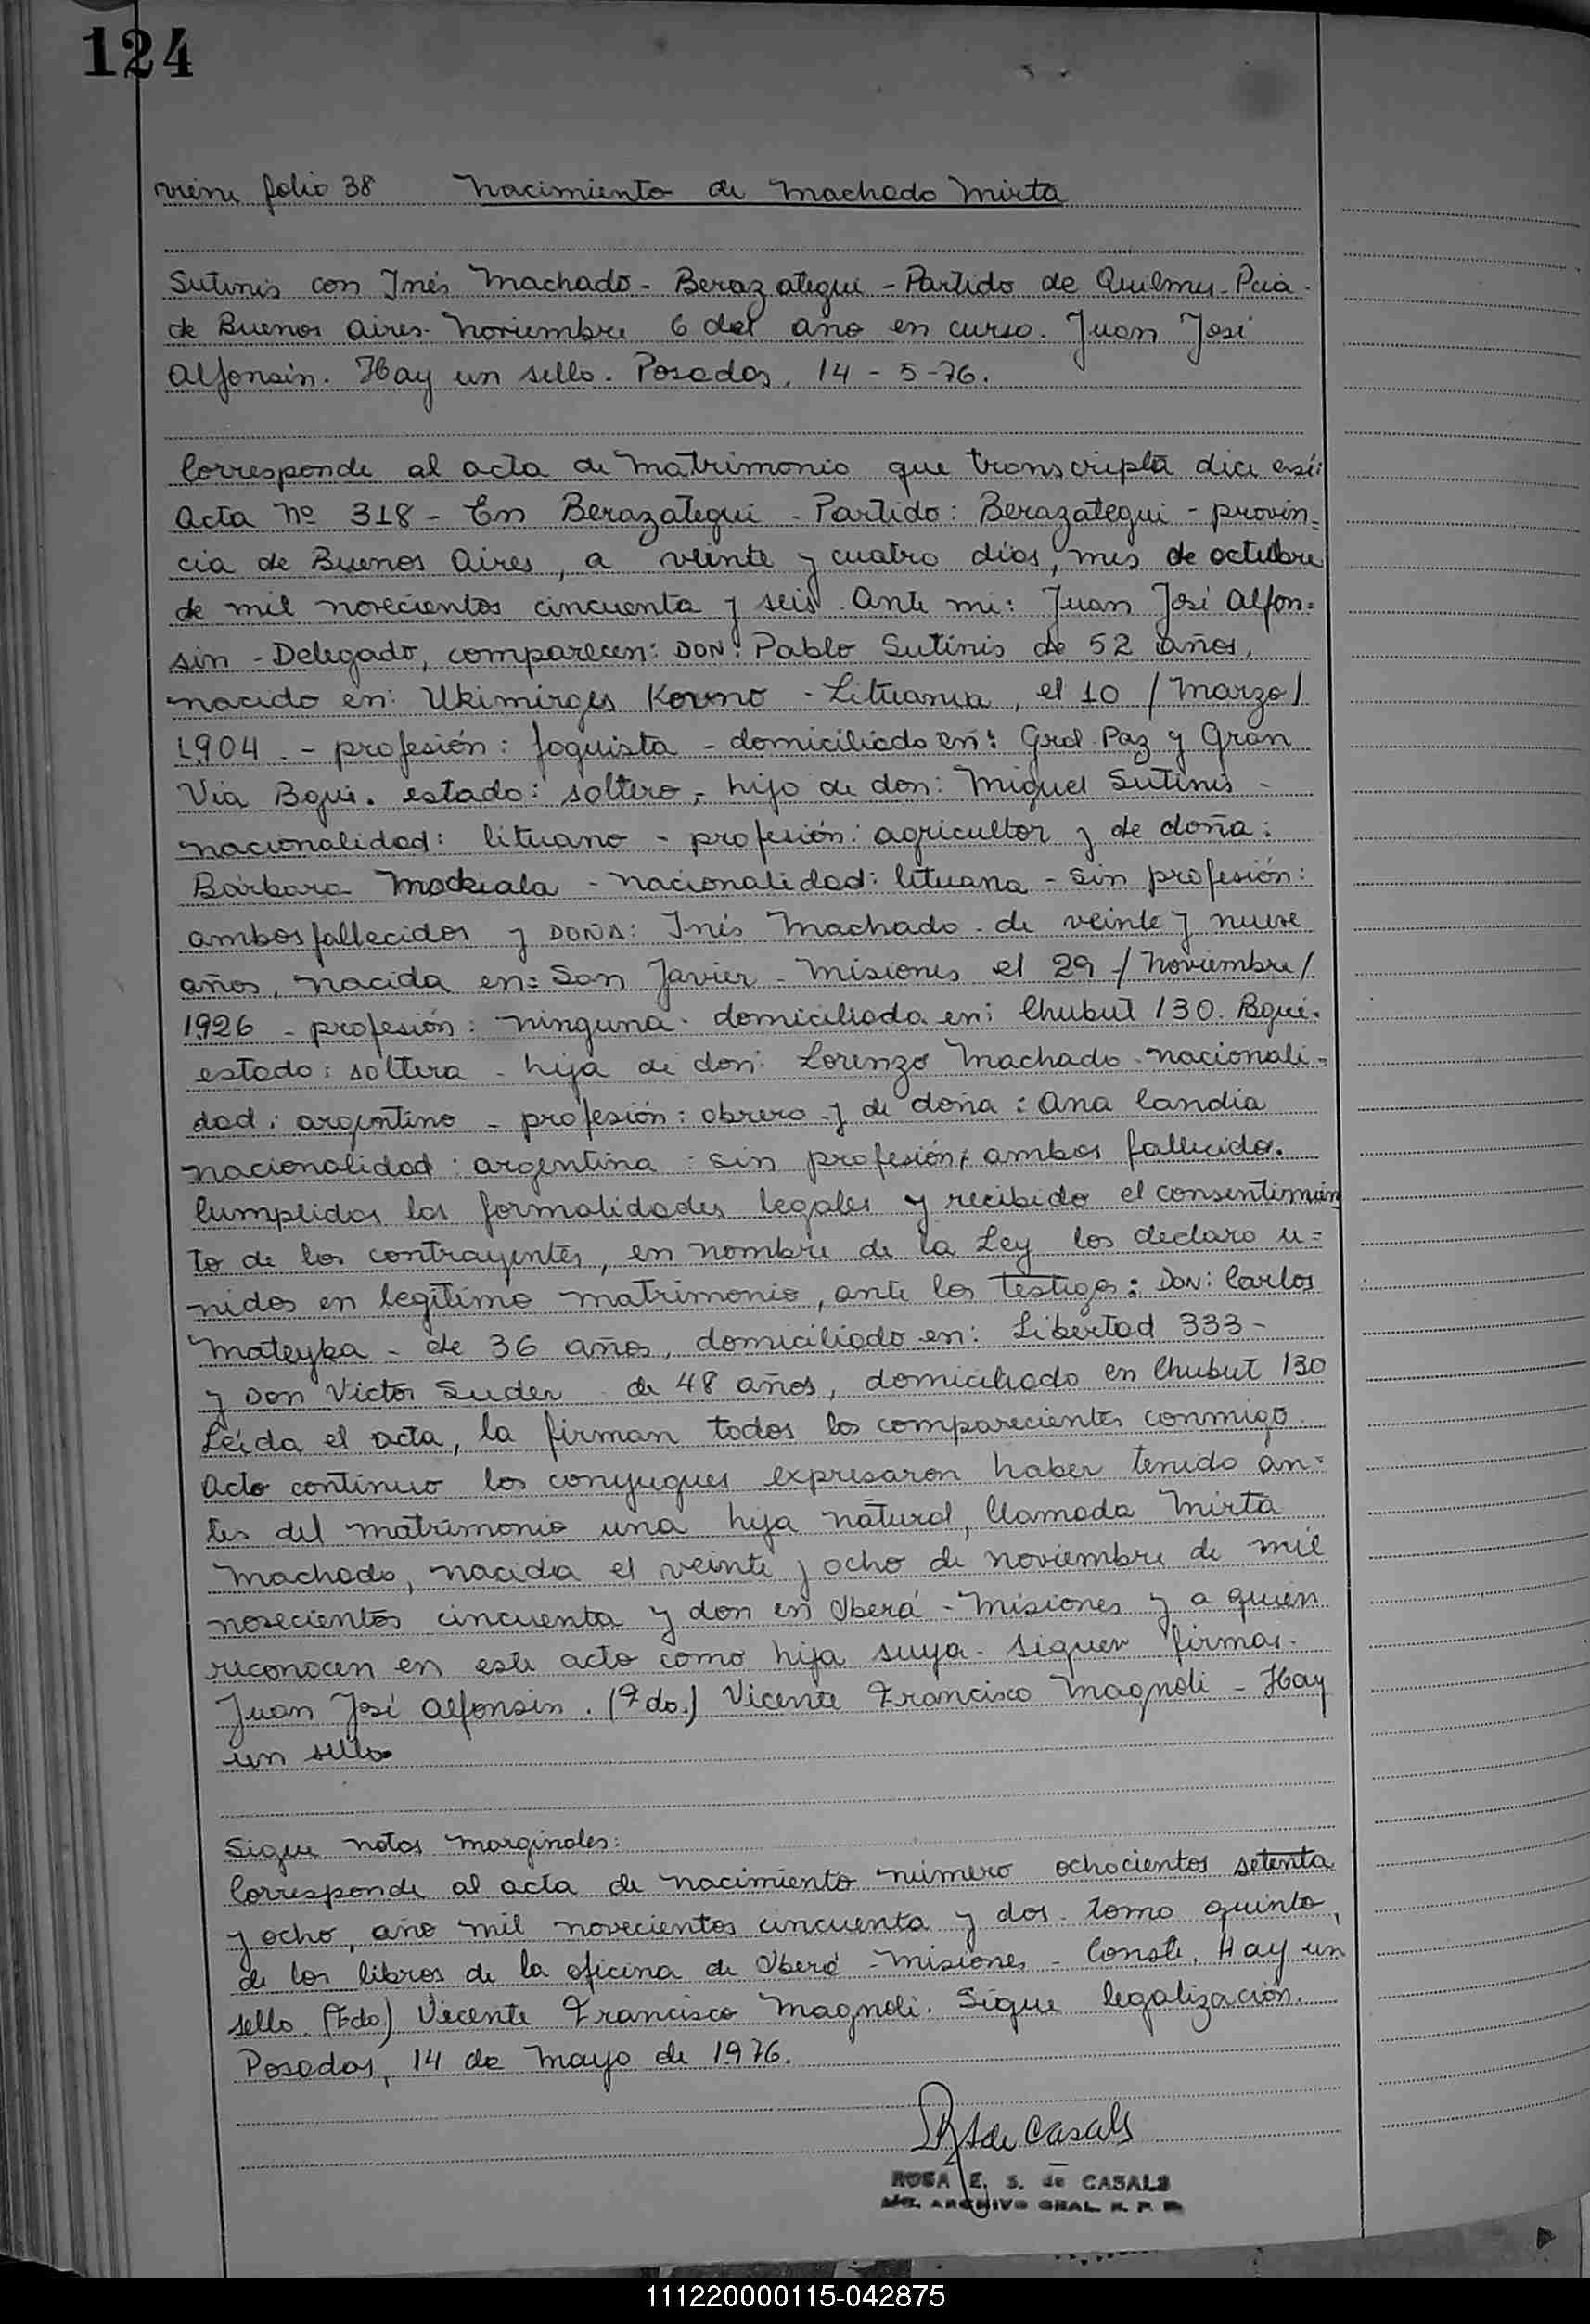 124
viene folio 38 Nacimiento de Machado Mirta
Sutinis con Inés Machado - Berazategui - Partido de Quilmes - Pcia.
de Buenos Aires - Noviembre 6 del año en curso. Juan José
Alfonsín. Hay un sello. Posadas, 14 - 5 - 76.
Corresponde al acta de matrimonio que transcripta dice así:
Acta Nº 318 - En Berazategui - Partido: Berazategui - provin=
cia de Buenos Aires, a veinte y cuatro días, mes de octubre
de mil novecientos cincuenta y seis. Ante mi: Juan José Alfon=
sin - Delegado, comparecen: DON: Pablo Sutinis de 52 años,
nacido en: Ukimirges Kovno - Lituania, el 10 / Marzo /
1.904. - profesión: foguista - domiciliado en: Gral. Paz y Gran
Via Bgui. estado: soltero, - hijo de don: Miguel Sutinis -
nacionalidad: lituano - profesión: agricultor y de doña:
Bárbara Mockiala - nacionalidad: lituana - sin profesión:
ambos fallecidos y DOÑA: Inés Machado - de veinte y nueve
años, nacida en: San Javier - Misiones el 29 / Noviembre /
1926 - profesión: ninguna - domiciliada en: Chubut 130. Bgui.
estado: soltera - hija de don: Lorenzo Machado - nacionali=
dad: argentino - profesión: obrero - y de doña: Ana Candia
nacionalidad: argentina: sin profesión; ambos fallecidos.
Cumplidas las formalidades legales y recibido el consentimien
to de los contrayentes, en nombre de la Ley los declaro u=
nidos en legítimo matrimonio, ante los testigos: Don: Carlos
Mateyka - de 36 años, domiciliado en: Libertad 333 -
y Don Victor Suder de 48 años, domiciliado en Chubut 130
Leída el acta, la firman todos los comparecientes conmigo.
Acto continuo los conyugues expresaron haber tenido an=
tes del matrimonio una hija natural, llamada Mirta
Machado, nacida el veinte y ocho de noviembre de mil
novecientos cincuenta y don en Oberá - Misiones y a quien
reconocen en este acto como hija suya. siguen firmas.
Juan José Alfonsín. (Fdo.) Vicente Francisco Magnoli - Hay
un sello.
Sigue notas marginales:
Corresponde al acta de nacimiento número ochocientos setenta
y ocho, año mil novecientos cincuenta y dos - tomo quinto,
de los libros de la oficina de Oberá - Misiones - Conste. Hay un
sello. (Fdo) Vicente Francisco Magnoli. Sigue legalización.
Posadas, 14 de Mayo de 1976.
de Casals
ROSA E. S. de CASALS
ARCHIVO GRAL. R. P.
111220000115-042875